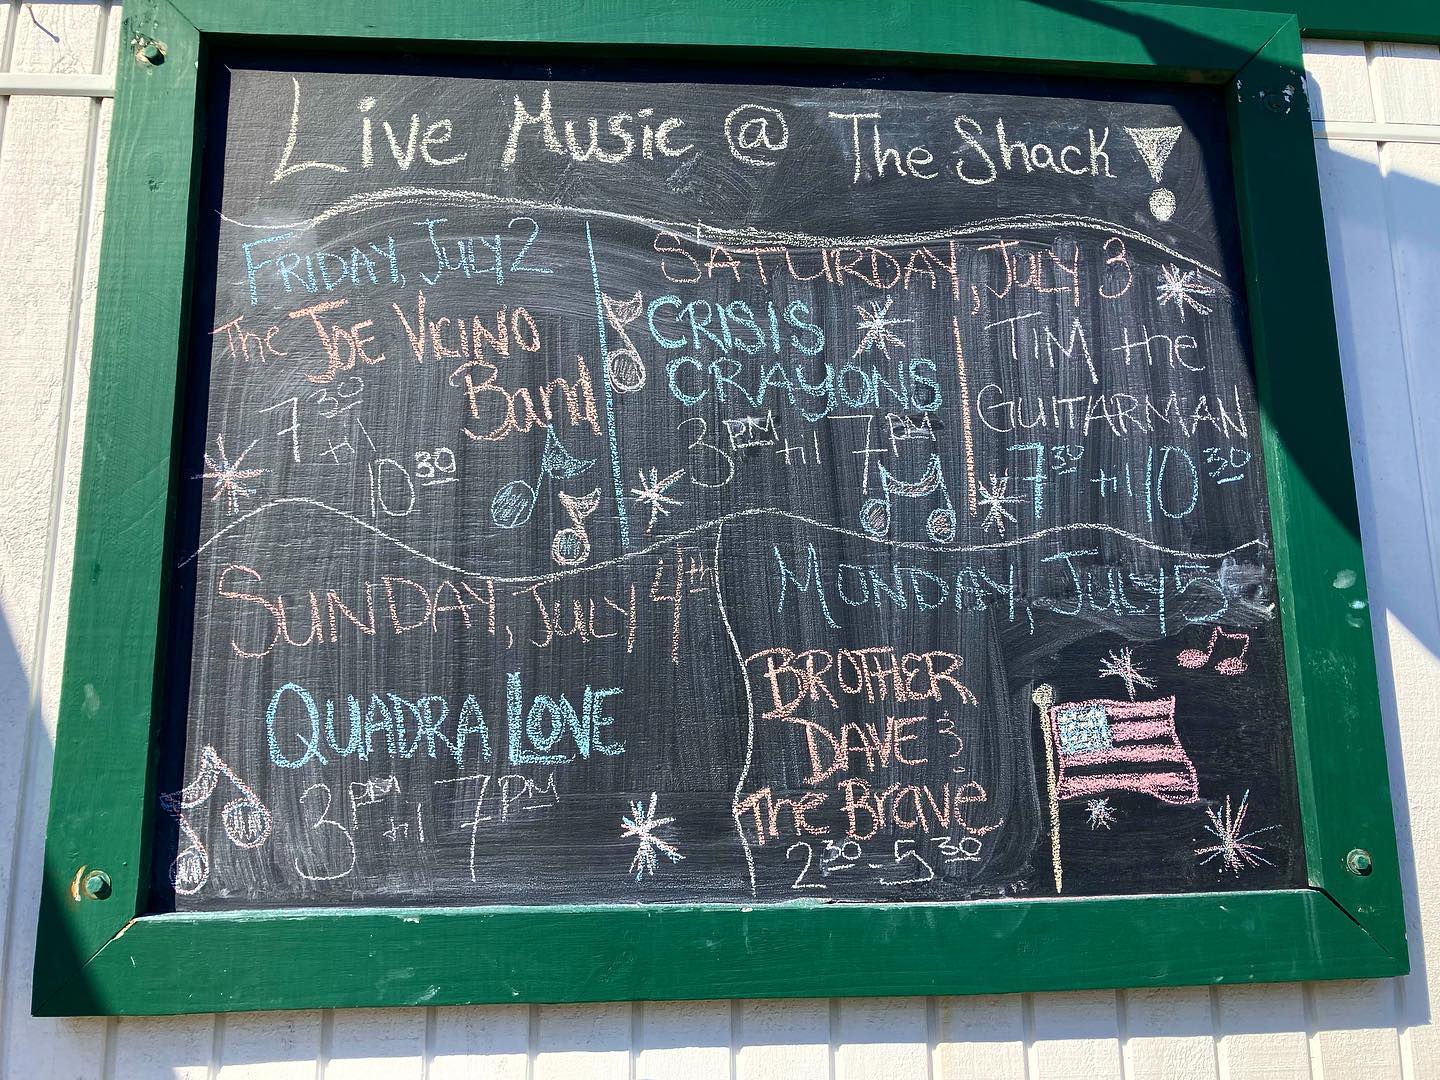 Live Music @ The Shack!
FRIDAY, JULY 2
The JOE VICINO
Band
7 30
til
10 30
SATURDAY, JULY 3
CRISIS
CRAYONS
3 PM til 7 PM
TIM the
GUITARMAN
7 30 til 10 30
SUNDAY, JULY 4th
QUADRA LOVE
3 PM til 7 PM
MONDAY, JULY 5
BROTHER
DAVE &
The Brave
2 30 - 5 30